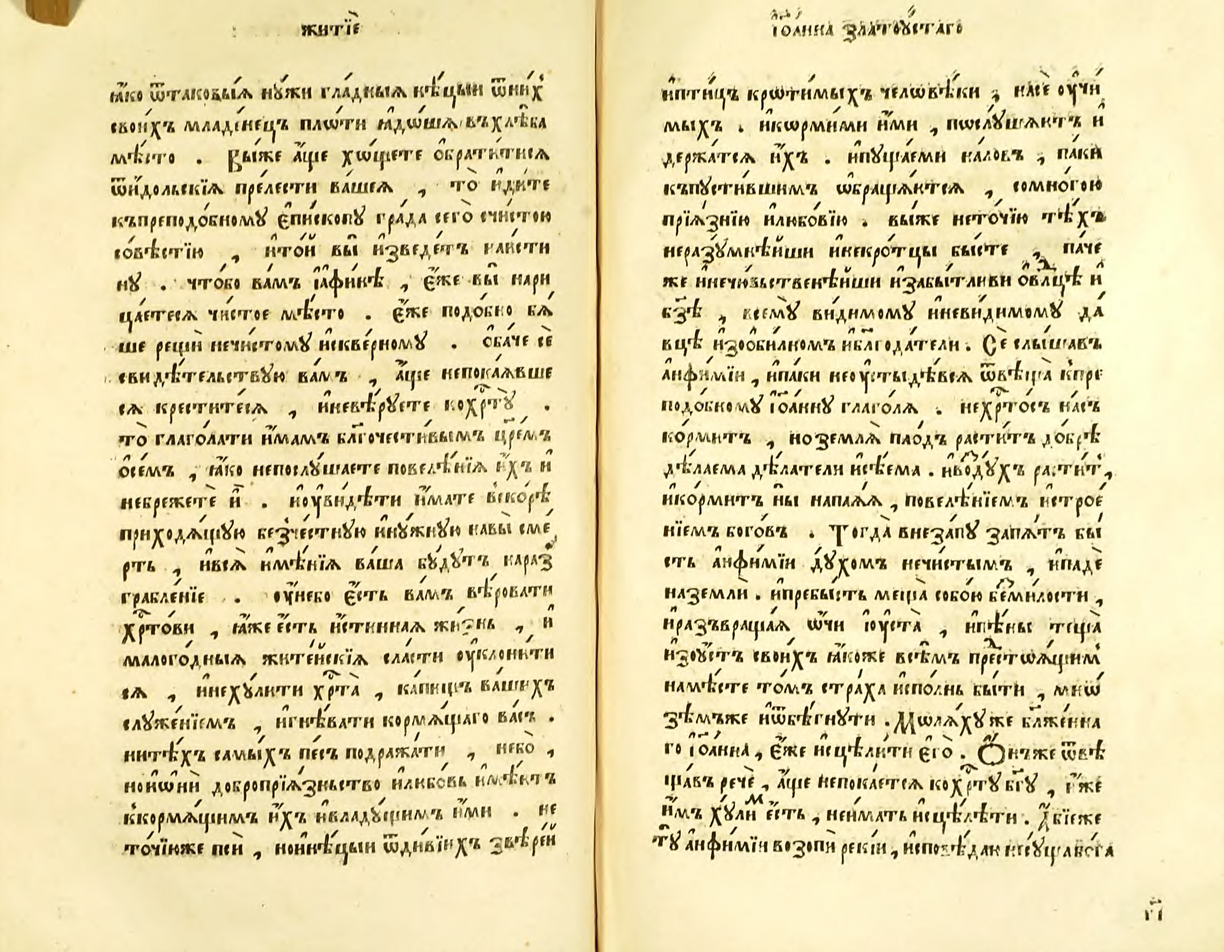 житїѐ
ꙗ҆́ко ѿтаковы́ѧ нꙋ́жи гла́дныѧ нѣ́цыи ѿни́хꙿ
свои́хъ младе́нецъ пло́ти ꙗ҆до́шѧ въхлѣ́ба
мѣ́сто . Вы́же а҆́ще хо́щете ѡ҆брати́тисѧ
ѿи҆́дольскїѧ пре́лести ва́шеѧ , то̀ и҆ди́те
къпреподо́бномꙋ є҆пи́скопꙋ гра́да сего̀ счи́стою
со́вѣстїю , и҆то́й вы̀ и҆зведе́тъ наи́сти
нꙋ . что́бо ва́мъ їа҆фи́нѣ , є҆́же вы̀ нари
ца́етесѧ чи́стое мѣ́сто . є҆́же подо́бно бѧ́
ше рещѝ нечи́стомꙋ и҆скве́рномꙋ . ѻ҆ба́че сѐ
свидѣ́тельствꙋю ва́мъ , а҆́ще непока́ѧвше
сѧ крести́тесѧ , и҆невѣ́рꙋете кохр҇тꙋ̀ .
то̀ глаго́лати и҆́мамъ бл҃гочести́вымъ цр҃е́мъ
ѻ҆се́мъ , ꙗ҆́ко непослꙋ́шаете повелѣ́нїѧ и҆́хъ и҆
небреже́те и҆̀ . и҆ᲂу҆ви́дѣти и҆́мате вско́рѣ
приходѧ́щꙋю безче́стнꙋю и҆нꙋ́жнꙋю навы̀ сме́
рть , и҆всѧ̀ и҆мѣ́нїѧ ва́ша бꙋ́дꙋтъ нараз
грабле́нїе . ᲂу҆не́бо є҆́сть ва́мъ вѣ́ровати
хр҇то́ви , ꙗ҆́же є҆́сть и҆́стинная жи́знь , и҆
малого́дныѧ жите́йскїѧ сла́сти ᲂу҆клони́ти
сѧ , и҆нехꙋ́лити хр҇та̀ , ка́пищъ ва́шихъ
слꙋже́нїемъ , и҆гнѣ́вати кормѧ́щаго ва́съ .
нитѣ́хъ самы́хъ пе́съ подража́ти , не́бо ,
но҆и҆ѡнѝ доброприѧ́зньство и҆любо́вь и҆мѣ́ютъ
ккормѧ́щимъ и҆́хъ и҆владꙋ́щимъ и҆́ми . не
то́чїюже псѝ , но҆и҆нѣ́цыи ѿди́вїихъ ѕвѣре́й
їѡа́нна златоꙋ́стаго
и҆пти́цъ кроти́мыхъ человѣ́ки , нас́е ᲂу҆чи́
мыхъ . и҆корми́ми и҆́ми , послꙋ́шаютъ и҆
держа́тсѧ и҆́хъ . и҆пꙋща́еми на́ловъ , па́ки
къпꙋсти́вшимъ ѡ҆браща́ютсѧ , сомно́гою
прїѧ́знїю и҆любо́вїю . вы́же нето́чїю тѣ́хъ
неразꙋ́мнѣйши и҆некро́тцы бы́сте , па́че
же и҆нечю́вьственѣйши и҆забы́тливи ѻ҆влⷣцѣ и҆
бз҃ѣ , всемꙋ̀ ви́димомꙋ и҆неви́димомꙋ да́
вцѣ и҆зоби́лномъ и҆благода́тели . Сѐ слы́шавъ
а҆нфимі́и , и҆па́ки неᲂу҆стыдѣ́всѧ ѿвѣща̀ кпре
подо́бномꙋ їѡа́ннꙋ глаго́лѧ . нехр҇то́съ на́съ
ко́рмитъ , но҆землѧ̀ пло́дъ расти́тъ до́брѣ
дѣ́лаема дѣ́латели и҆сѣ́ема . и҆во́здꙋхъ расти́т ,
и҆ко́рмитъ ны̀ напаѧ́ѧ , повелѣ́нїемъ и҆строе́
нїемъ бого́въ . Тогда̀ внеза́пꙋ запѧ́тъ бы́
сть а҆нфимі́и дꙋ́хомъ нечи́стымъ , и҆падѐ
наземлѝ . и҆пребы́сть меща̀ собо́ю беми́лости ,
и҆развраща́ѧ ѻ҆́чи и҆ᲂу҆ста̀ , и҆пѣ́ны теща̀
и҆зᲂу҆́стъ свои́хъ ꙗ҆́коже всѣ́мъ престоѧ́щим
намѣ́сте то́мъ стра́ха и҆спо́лнь бы́ти , мнѡ
зѣ́мъже и҆ѿбѣ́гнꙋти . Молѧ́хꙋже бл҃же́нна
го їѡа́нна , є҆́же и҆сцѣли́ти є҆го̀ . Ѻ҆́нъже ѿвѣ
ща́въ речѐ , а҆́ще непока́етсѧ кохр҇тꙋ бг҃ꙋ , є҆́же
и҆́мъ хꙋ́лим є҆́сть , неи́мать и҆сцѣлѣ́ти . А҆́бїеже
тꙋ̀ а҆нфимі́и возопѝ рекі́и , и҆сповѣ́даю
г҃і